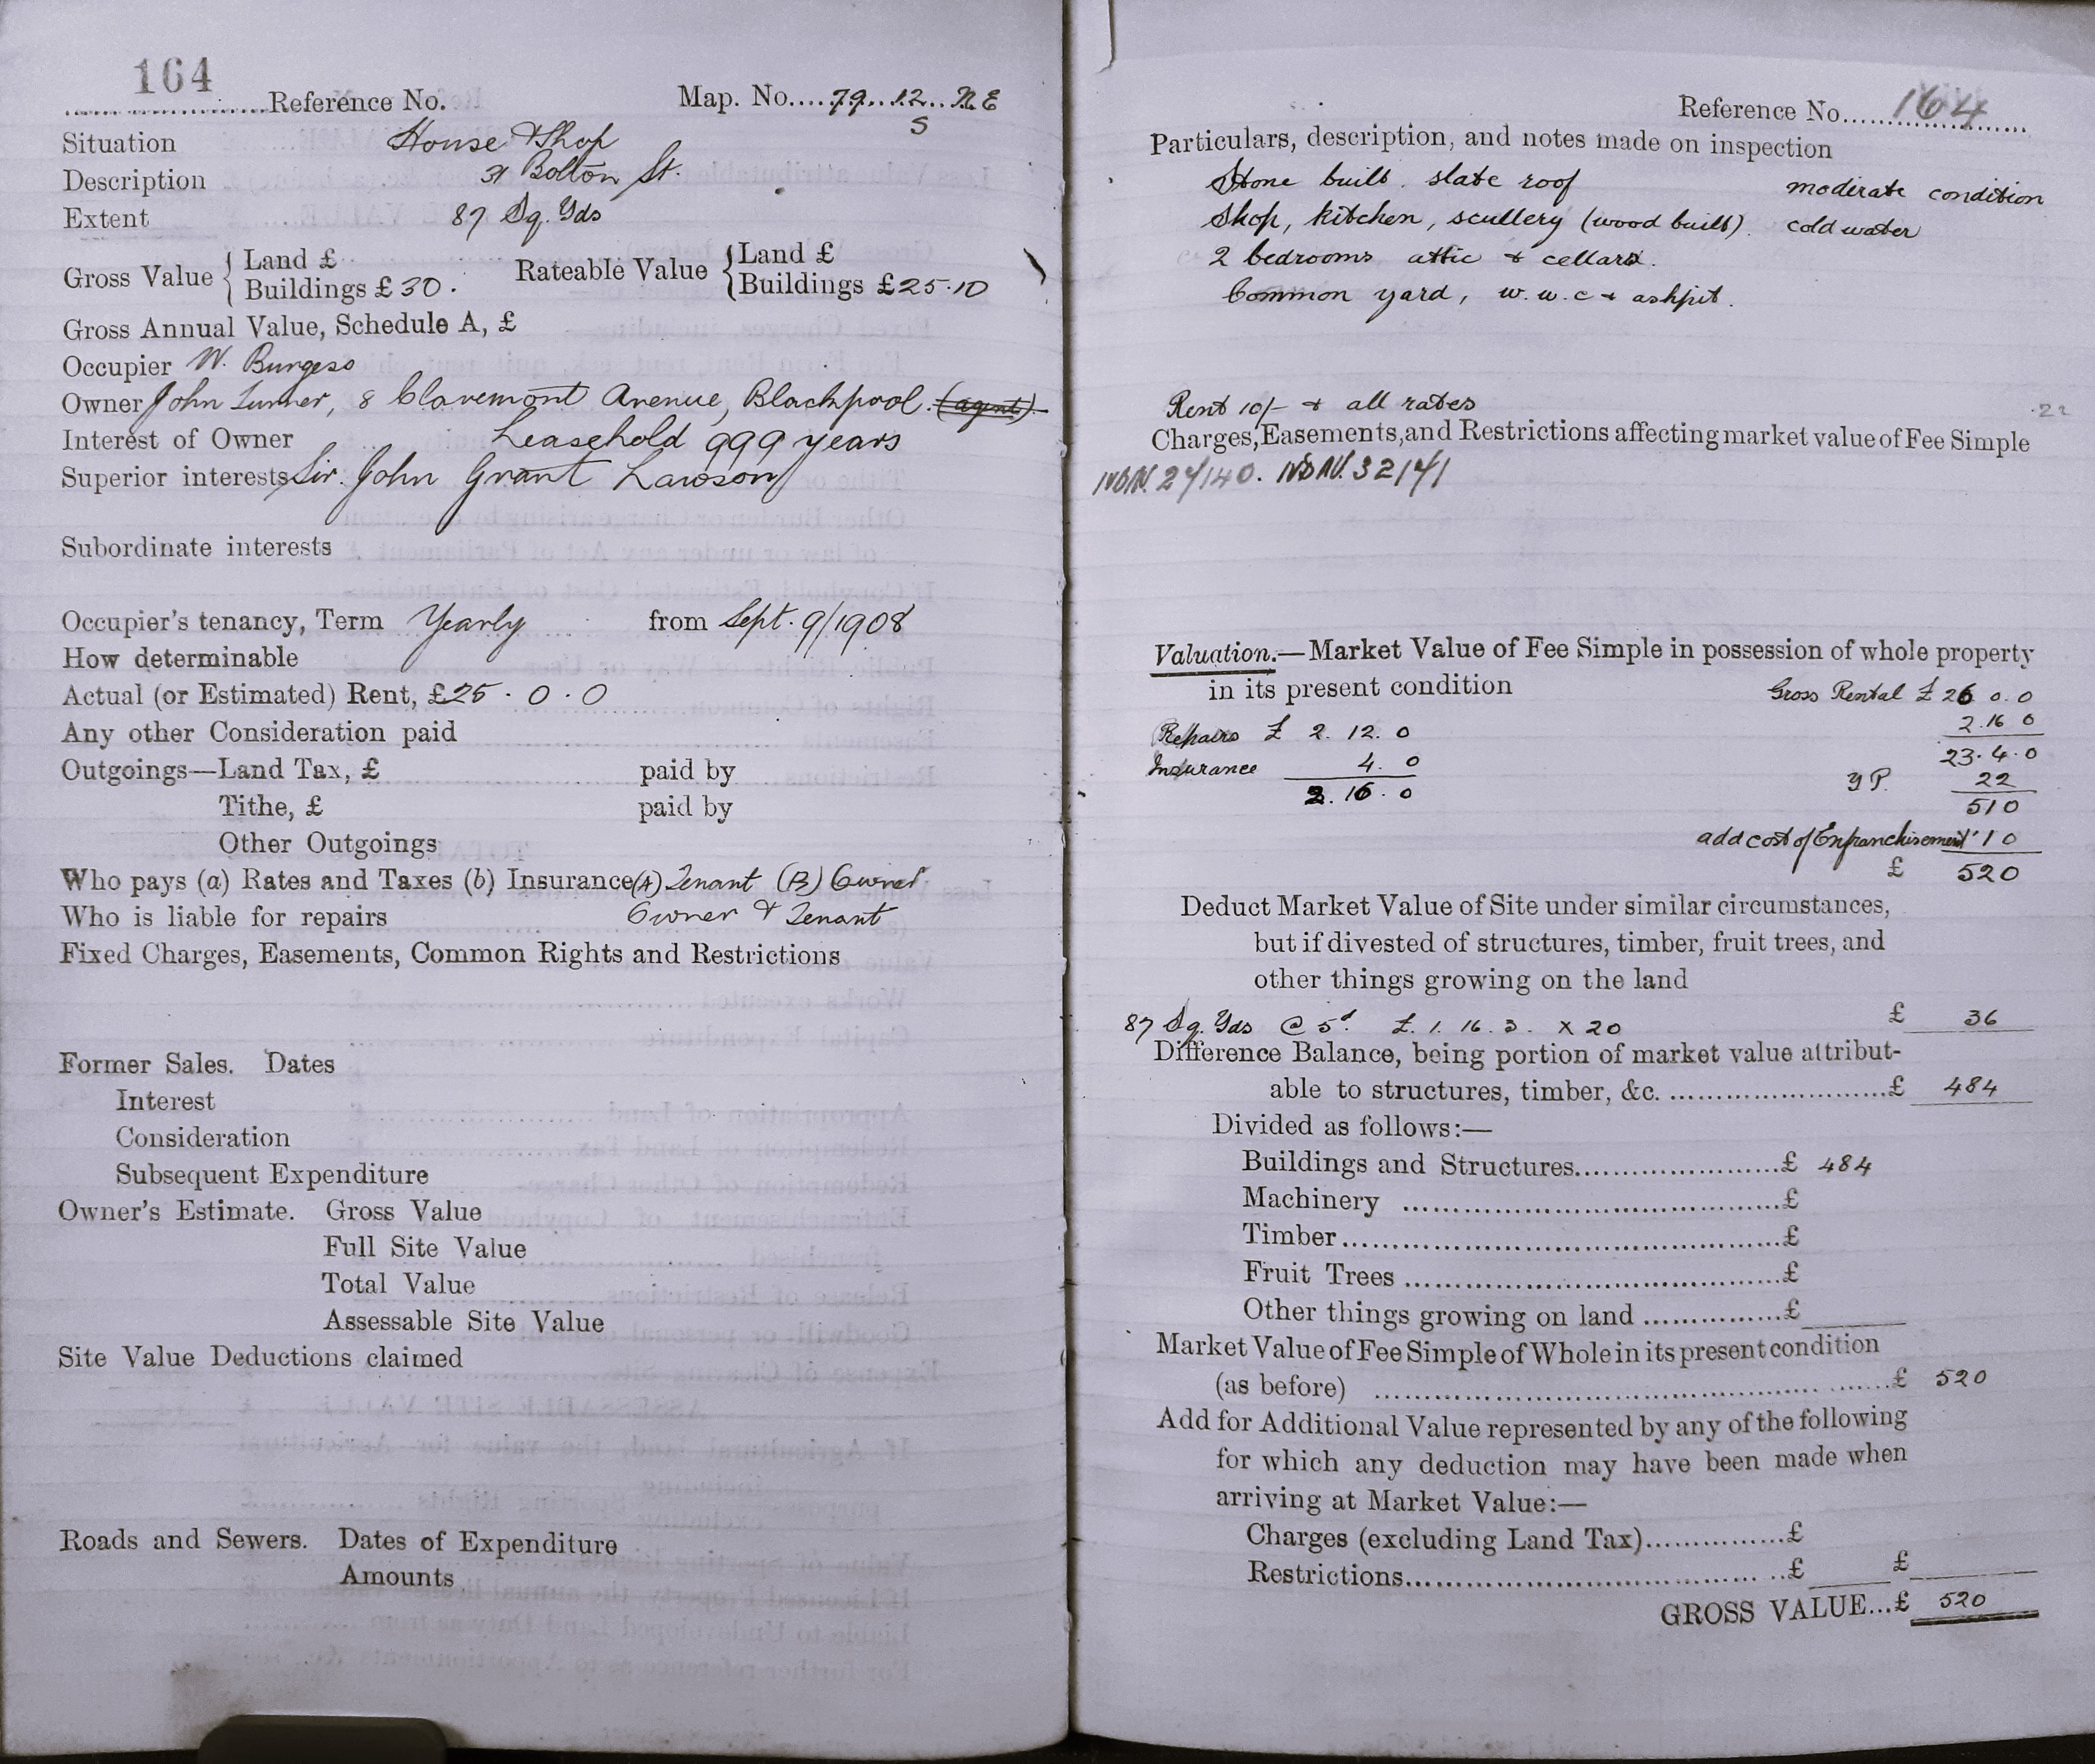 164
Reference No. Map. No.... 79.. 12.. N.E
S
Situation House & Shop
Description 31 Bolton St.
Extent 87 Sq. Yds
Gross Value { Land £ Rateable Value { Land £
Buildings £ 30 . Buildings £ 25.10
Gross Annual Value, Schedule A, £
Occupier W. Burgess
Owner John Turner, 8 Claremont Avenue, Blackpool. (agent)
Interest of Owner Leasehold 999 years
Superior interests Sir. John Grant Lawson
Subordinate interests
Occupier's tenancy, Term Yearly from Sept. 9/1908
How determinable
Actual (or Estimated) Rent, £25 . 0 . 0
Any other Consideration paid
Outgoings—Land Tax, £ paid by
Tithe, £ paid by
Other Outgoings
Who pays (a) Rates and Taxes (b) Insurance (A) Tenant (B) Owner
Who is liable for repairs Owner & Tenant
Fixed Charges, Easements, Common Rights and Restrictions
Former Sales. Dates
Interest
Consideration
Subsequent Expenditure
Owner's Estimate. Gross Value
Full Site Value
Total Value
Assessable Site Value
Site Value Deductions claimed
Roads and Sewers. Dates of Expenditure
Amounts
Reference No. 164
Particulars, description, and notes made on inspection
Stone built. slate roof moderate condition
Shop, kitchen, scullery (wood built). cold water
2 bedrooms attic & cellars.
Common yard, w.w.c & ashpit.
Rent 10/- & all rates
.22
Charges, Easements, and Restrictions affecting market value of Fee Simple
Valuation.—Market Value of Fee Simple in possession of whole property
in its present condition Gross Rental £ 26 0.0
2.16 0
Repairs £ 2. 12. 0 23.4.0
Insurance 4. 0 Y P. 22
2. 16. 0 510
add cost of Enfranchisement 10
£ 520
Deduct Market Value of Site under similar circumstances,
but if divested of structures, timber, fruit trees, and
other things growing on the land
87 Sq. Yds @ 5d. £. 1. 16. 3. x 20 £ 36
Difference Balance, being portion of market value attribut-
able to structures, timber, &c. ........................£ 484
Divided as follows:—
Buildings and Structures.....................£ 484
Machinery .......................................£
Timber.............................................£
Fruit Trees .......................................£
Other things growing on land ...............£
Market Value of Fee Simple of Whole in its present condition
(as before) ..................................................£ 520
Add for Additional Value represented by any of the following
for which any deduction may have been made when
arriving at Market Value:—
Charges (excluding Land Tax)...............£
Restrictions.......................................£ £
GROSS VALUE...£ 520